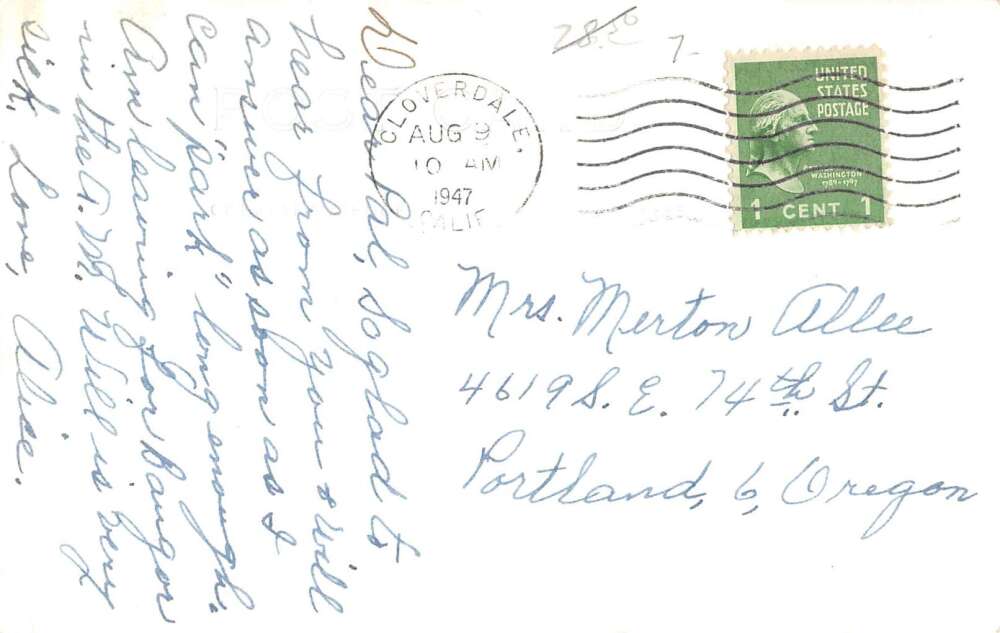 Dear Pal, So glad to
hear from you & will
answer as soon as I
can "park" long enough.
Am leaving for Bangor
in the A.M. Will is very
sick, Love, Alice.
POST CARD
28.50
7-
CLOVERDALE,
AUG 9
10 AM
1947
CALIF.
UNITED
STATES
POSTAGE
WASHINGTON
1789-1797
1 CENT 1
Mrs. Merton Allee
4619 S. E. 74th St.
Portland, 6, Oregon